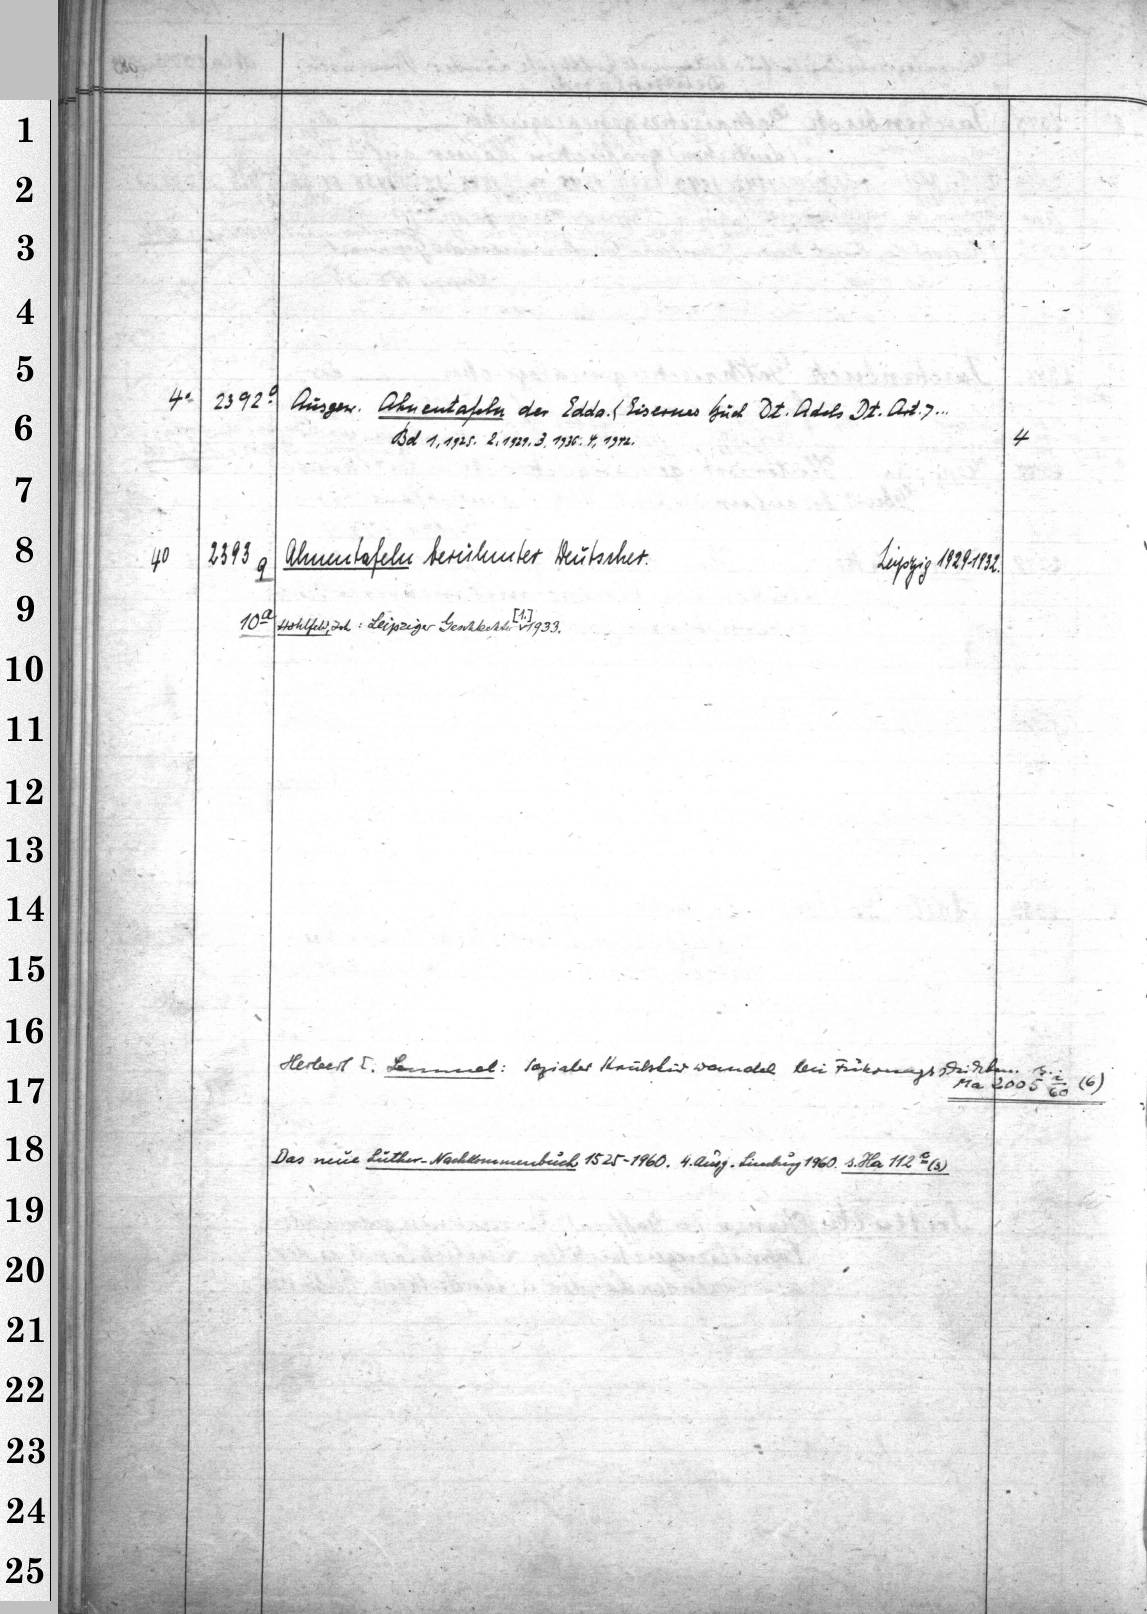 1
2
3
4
5
4° 2392ᵃ Ausgew. Ahnentafeln der Edda. (Eisernes Buch Dt. Adels Dt. Art.) ...
6
Bd 1, 1925. 2, 1929. 3, 1936. 4, 1942. 4
7
8
4° 2393 q Ahnentafeln berühmter Deutscher. Leipzig 1929-1932.
9
10ᵃ Hohlfeld, Joh: Leipziger Geschlechter [1.] 1933.
10
11
12
13
14
15
16
Herbert Lemmel: Sozialer wandel bei Führungs
17
Ma 2005 i/60 (6)
18
Das neue Luther-Nachkommenbuch 1525-1960. 4. Ausg. Limburg 1960. s. Ha 112 (3)
19
20
21
22
23
24
25